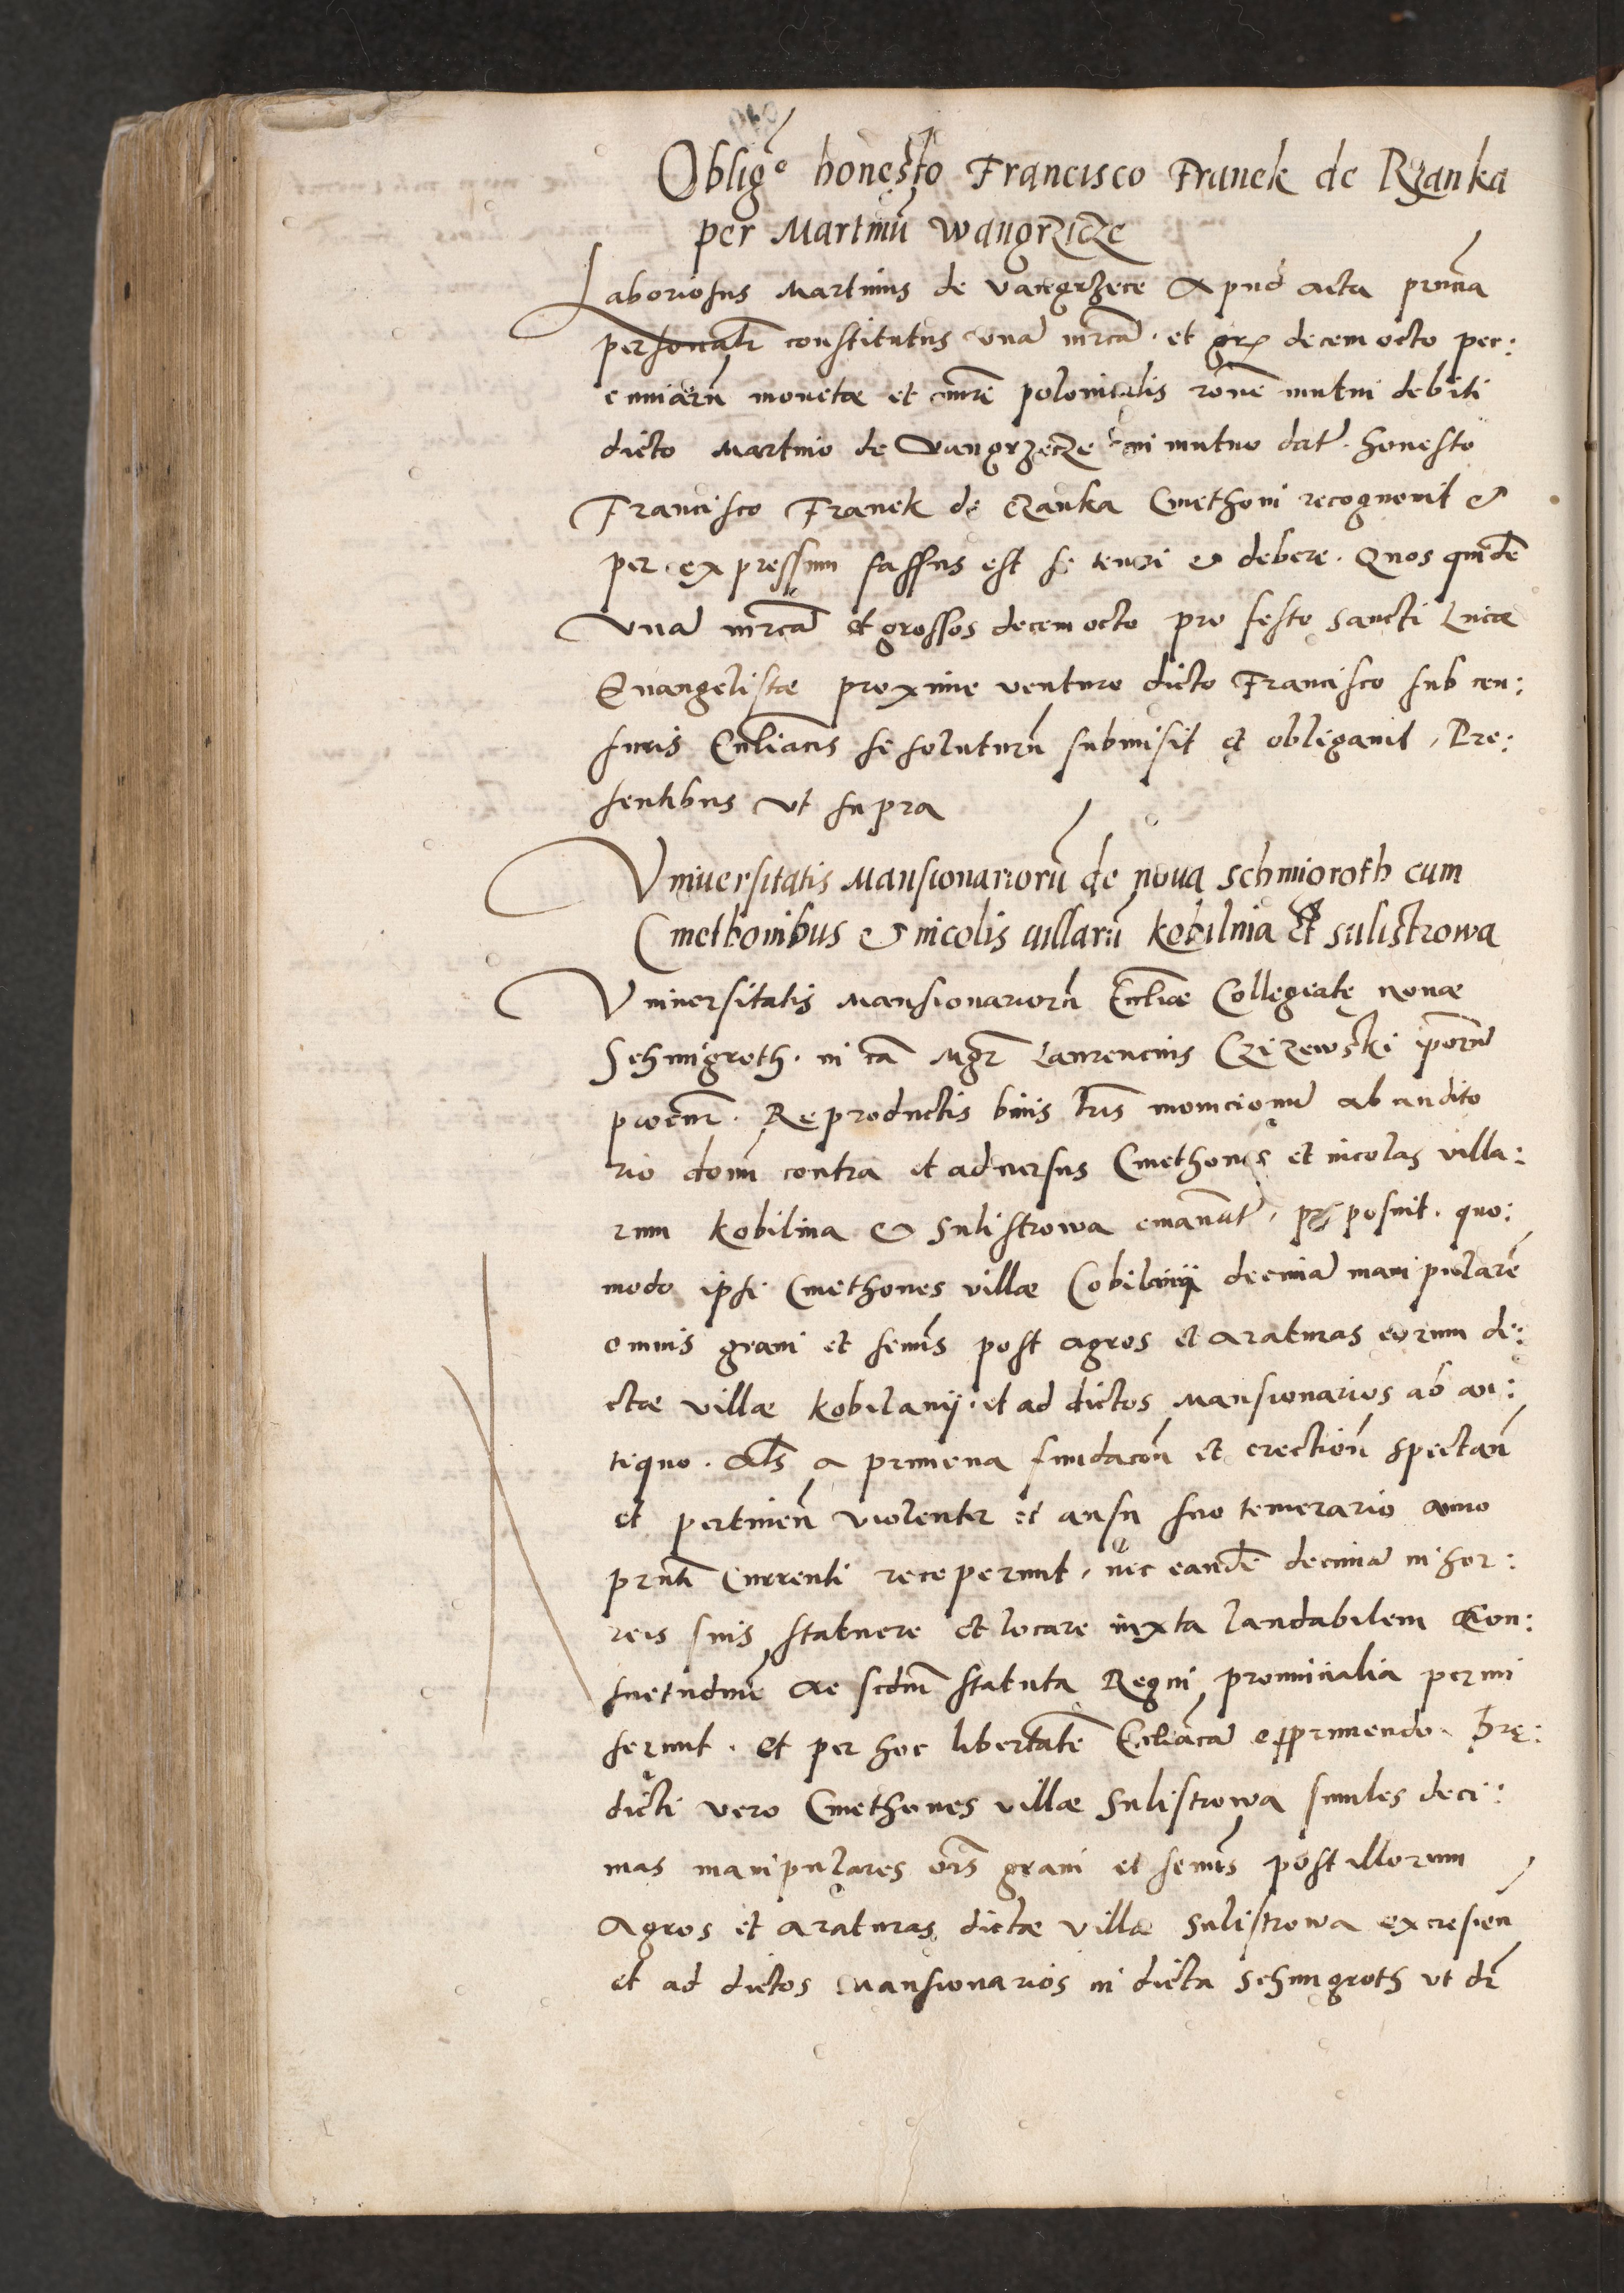 Oblig° honesto Francisco Franek de Rzanka
per Martinū Wangrzicze
Laboriosus Martinus de Vangrzecze Apud acta pn̄tia
personalr̄ constitutus vnā mr̄cā. et gr̄ decem octo pec:
cuniarū monetæ et num̄ polonicalis rōne mutui debiti
dicto Martino de Vangrzecze mutuo dat̄. honesto
Francisco Franek de Rzanka Cmethoni recognouit &
per expressum fassus est se teneri & debere. Quos quidē
Vnā mr̄cā et grossos decem octo pro festo Sancti Lucæ
Euangelistæ proxime venturo dicto Francisco sub cen:
suris Eccl̄iacis se soluturū submisit et obligauit. Pre:
sentibus vt supra
Vniuersitatis Mansionariorū de noua Schmigroth cum
Cmethonibus & incolis uillarū Kobilnia et Sulistrowa
Vniuersitatis Mansionariorū Eccl̄iæ Collegiatę nouæ
Schmigroth. in cā Mgr̄ Laurencius Czizewski ip̄orū
procur̄. Reproductis binis lr̄is monicionū ab audito
rio dom̄ contra et aduersus Cmethones et incolas villa:
rum Kobilina & Sulistrowa emanat̄, proposuit. quo:
modo ipsi Cmethones villæ Cobilanij decimā manipularē
omnis grani et semīs post agros et araturas eorum di:
ctæ villæ Kobilanij. et ad dictos Mansionarios ab an:
tiquo. als a primeua fundacōn et erection̄ spectan̄
et pertinen̄ violenter et ausu suo temerario anno
pn̄ti Currenti receperunt, nec eandē decimā in hor:
reis suis statuere et locare iuxta laudabilem Con:
suetudinē ac scdm̄ statuta Regni prouincialia permi
serunt. et per hoc libertatē Eccl̄iacā opprimendo. Prę:
dicti vero Cmethones villæ Sulistrowa similes deci:
mas manipulares oīs grani et semīs post illorum
Agros et araturas dictæ villæ Sulistrowa excrescen̄
et ad dictos Mansionarios in dicta Schmigroth vt dr̄